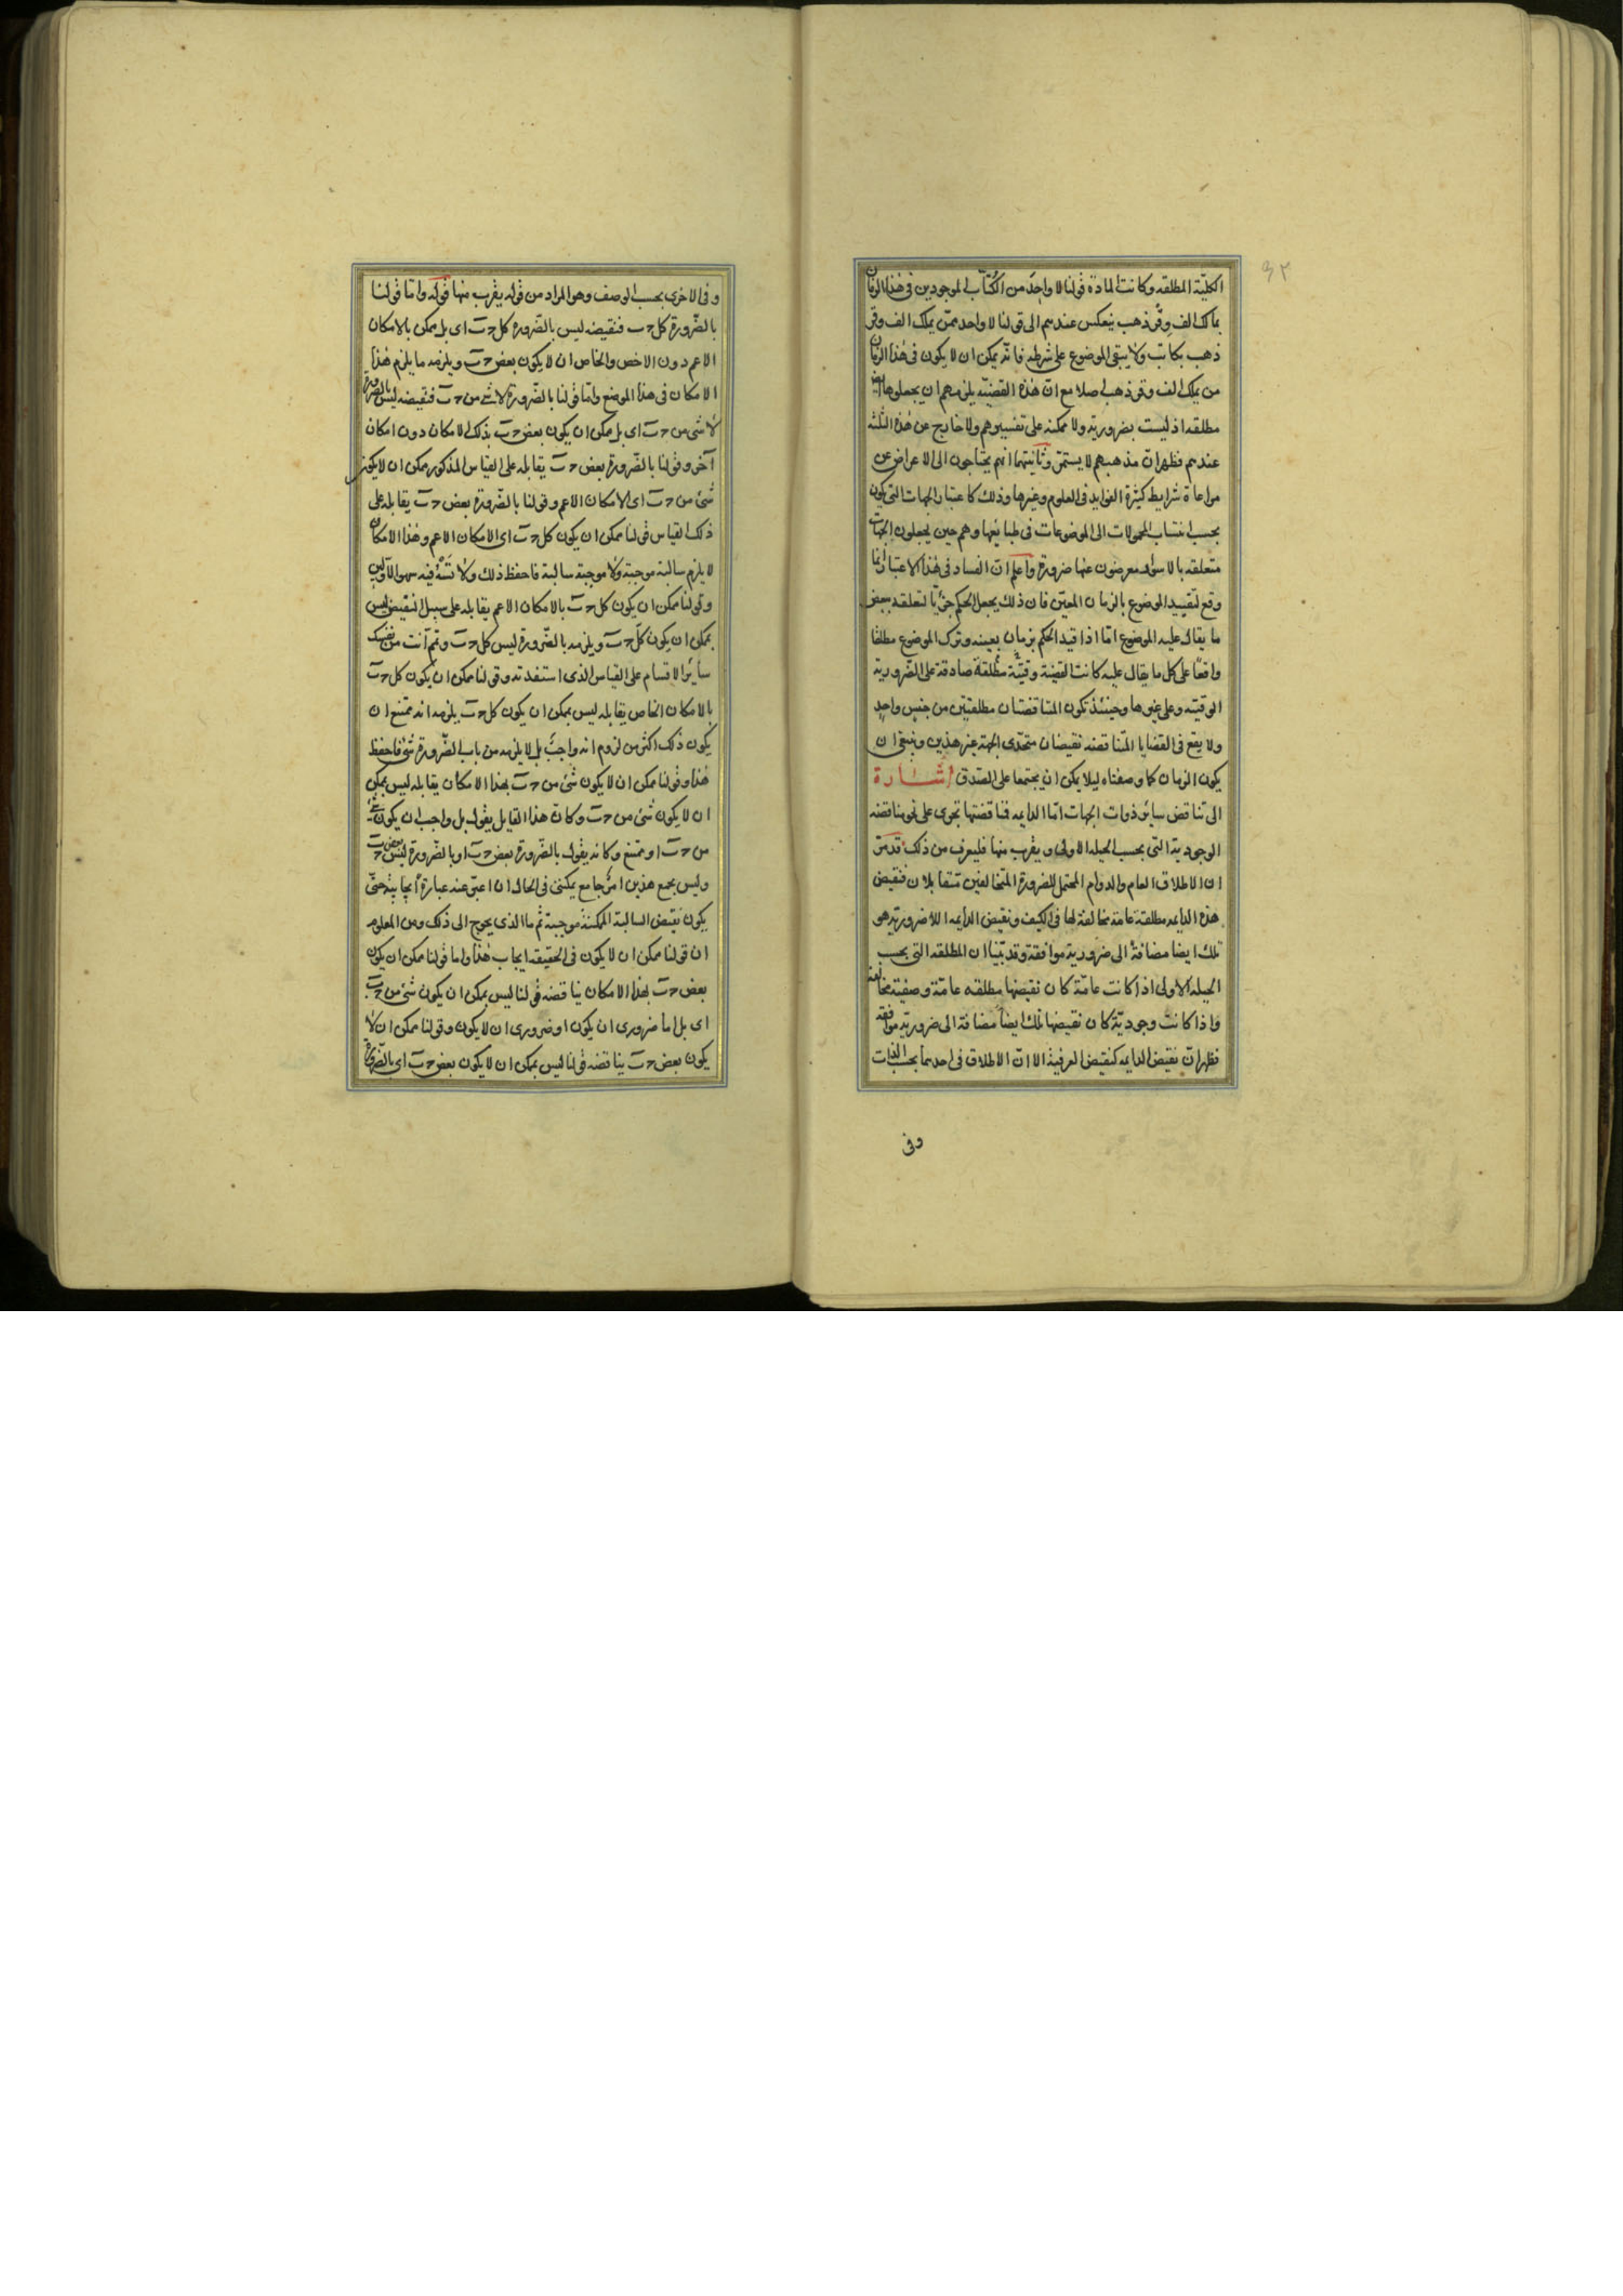 الكلية المطلقه وكانت المادة قولنا لا واحد من الكُتّاب الموجودين فى هذا الزمان
بمالك الف وقر ذهب ينعكس عندهم الى قولنا لا واحد ممن يملك الف وقر
ذهب بكاتب ولا يبقى الموضوع على شرطه فانه يمكن ان لا يكون فى هذا الزمان
من يملك الف وقر ذهب اصلا مع ان هذه القضيّه يلزمهم ان يجعلوها
مطلقه اذ ليست بضرورية ولا ممكنه على تفسيرهم ولا خارج عن هذه الثلثة
عندهم فظهر ان مذهبهم لا يستمر وثانيتهما انهم يحتاجون الى الاعراض عن
مراعاة شرايط كثيرة الفوايد فى العلوم وغيرها وذلك كاعتبار الجهات التى يكون
بحسب انتساب المحمولات الى الموضوعات فى طبايعها وهم حين يجعلون الجهات
متعلقه بالاسوار معرضون عنها ضرورة واعلم ان الفساد فى هذا الاعتبار انما
وقع لتقييد الموضوع بالزمان المعيّن فان ذلك يجعل الحكم جزئيا لتعلقه ببعض
ما يقال عليه الموضوع امّا اذا قيد الحكم بزمان بعينه وترك الموضوع مطلقا
واقعًا على كل ما يقال عليه كانت القضية وقتيّة مطلقة صادقة على الضرورية
الوقتيه وعلى غيرها وحينئذ تكون المتناقضتان مطلقتين من جنس واحد
ولا يقع فى القضايا المتناقضه نقيضان متحدى الجهة غير هذين وينبغى ان
يكون الزمان كما وصفناه ليلا يمكن ان يجتمعا على الصدق اشـارة
الى تناقض سائر ذوات الجهات امّا الدايمه فناقضتها تجرى على نحو مناقضه
الوجودية التى بحسب الحيلة الاولى ويقرب منها فليعرف من ذلك قد مر
ان الاطلاق العام والدوام المحتمل للضرورة المتخالفين متقابلان فنقيض
هذه الدايمه مطلقة عامة مخالفة لها فى الكيف ونقيض الدايمه اللاضروريه هى
تلك ايضا مضافةً الى ضرورية موافقة وقد بيّنا ان المطلقه التى بحسب
الحيله الاولى اذا كانت عامّة كان نقيضها مطلقه عامّة وصفية مخالفة
واذا كانت وجوديّة كان نقيضها تلك ايضاً مضافة الى ضروريّة موافقه
فظهر ان نقيض الدايمه كنقيض العرفية الا ان الاطلاق فى احديهما بحسب الذات
وفى
وفى الاخرى بحسب الوصف وهو المراد من قوله يقرب منها قوله وامّا قولنا
بالضّرورة كل ج ب فنقيضه ليس بالضرورة كل ج ب اى بل يمكن بالامكان
الاعم دون الاخص والخاص ان لا يكون بعض ج ب ويلزمه ما يلزم هذا
الامكان فى هذا الموضع وامّا قولنا بالضّرورة لا شئ من ج ب فنقيضه ليس بالضرورة
لا شئ من ج ب اى بل يمكن ان يكون بعض ج ب بذلك الامكان دون امكان
آخر وقولنا بالضّرورة بعض ج ب يقابله على القياس المذكور يمكن ان لا يكون
شئ من ج ب اى الامكان الاعم وقولنا بالضّرورة بعض ج ب يقابله على
ذلك القياس قولنا يمكن ان يكون كل ج ب اى الامكان الاعم وهذا الامكان
لا يلزم سالبة موجبة ولا موجبة سالبة فاحفظ ذلك ولا تسه فيه سهو الاولين
وقولنا ممكن ان يكون كل ج ب بالامكان الاعم يقابله على سبيل النقيض ليس
بممكن ان يكون كل ج ب ويلزمه بالضّرورة ليس كل ج ب وتمم انت من نفسك
سائر الاقسام على القياس الذى استفدته وقولنا ممكن ان يكون كل ج ب
بالامكان الخاص يقابله ليس بممكن ان يكون كل ج ب يلزمه انه ممتنع ان
يكون ذلك اكثر من لزوم انه واجب بل لا يلزمه من باب الضّرورة شئ فاحفظ
هذا وقولنا ممكن ان لا يكون شئ من ج ب بهذا الامكان يقابله ليس بممكن
ان لا يكون شئ من ج ب وكان هذا القايل يقول بل واجب ان يكون شئ
من ج ب او ممتنع وكانه يقول بالضرورة بعض ج ب او بالضّرورة ليس بعض ج ب
وليس يجمع هذين امر جامع يمكننى فى الحال ان اعبر عنه عبارة ايجابيّة حتى
يكون نقيض السالبة الممكنة موجبة ثم ما الذى يحوج الى ذلك ومن المعلوم
ان قولنا ممكن ان لا يكون فى الحقيقه ايجاب هذا واما قولنا ممكن ان يكون
بعض ج ب بهذا الامكان يناقضه قولنا ليس بممكن ان يكون شئ من ج ب
اى بل اما ضرورى ان يكون او ضرورى ان لا يكون وقولنا ممكن ان لا
يكون بعض ج ب يناقضه قولنا ليس بممكن ان لا يكون بعض ج ب اى بالضرورة